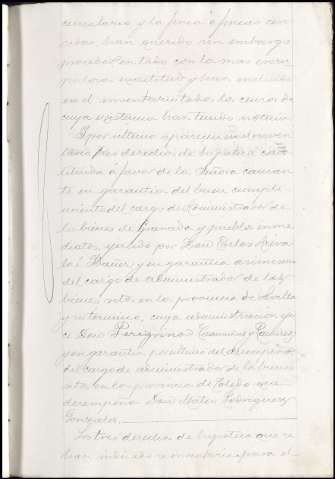 cuestario y la finca ó fincas con
sibas, han querido sin embargo
proceder en todo con la mas escru
pulosa exactitud y han incluido
en el inventario todas las cosas de
cuya existencia han tenido noticia.
Y por ultimo aparecen en el inven
tario tres derechos de hipoteca cons
tituidos á favor de la Señora causan
te en garantia del buen cumpli
miento del cargo de Administrador de
los bienes de Granada y pueblos inme
diatos, y asido por Don Carlos
y Bañez; y en garantia asimismo
del cargo de administrador de los
bienes sitos en la provincia de Sevilla
y su termino, cuya administracion
ce Don Peregrino Casanova y Ramirez
y en garantia por ultimo del desempeño
del cargo de administrador de los bienes
sitos en la provincia de Toledo que
desempeña Don Mateo Rodriguez
Gonzalez.
Los tres derechos de hipoteca que se
han indicado se inventarian para el